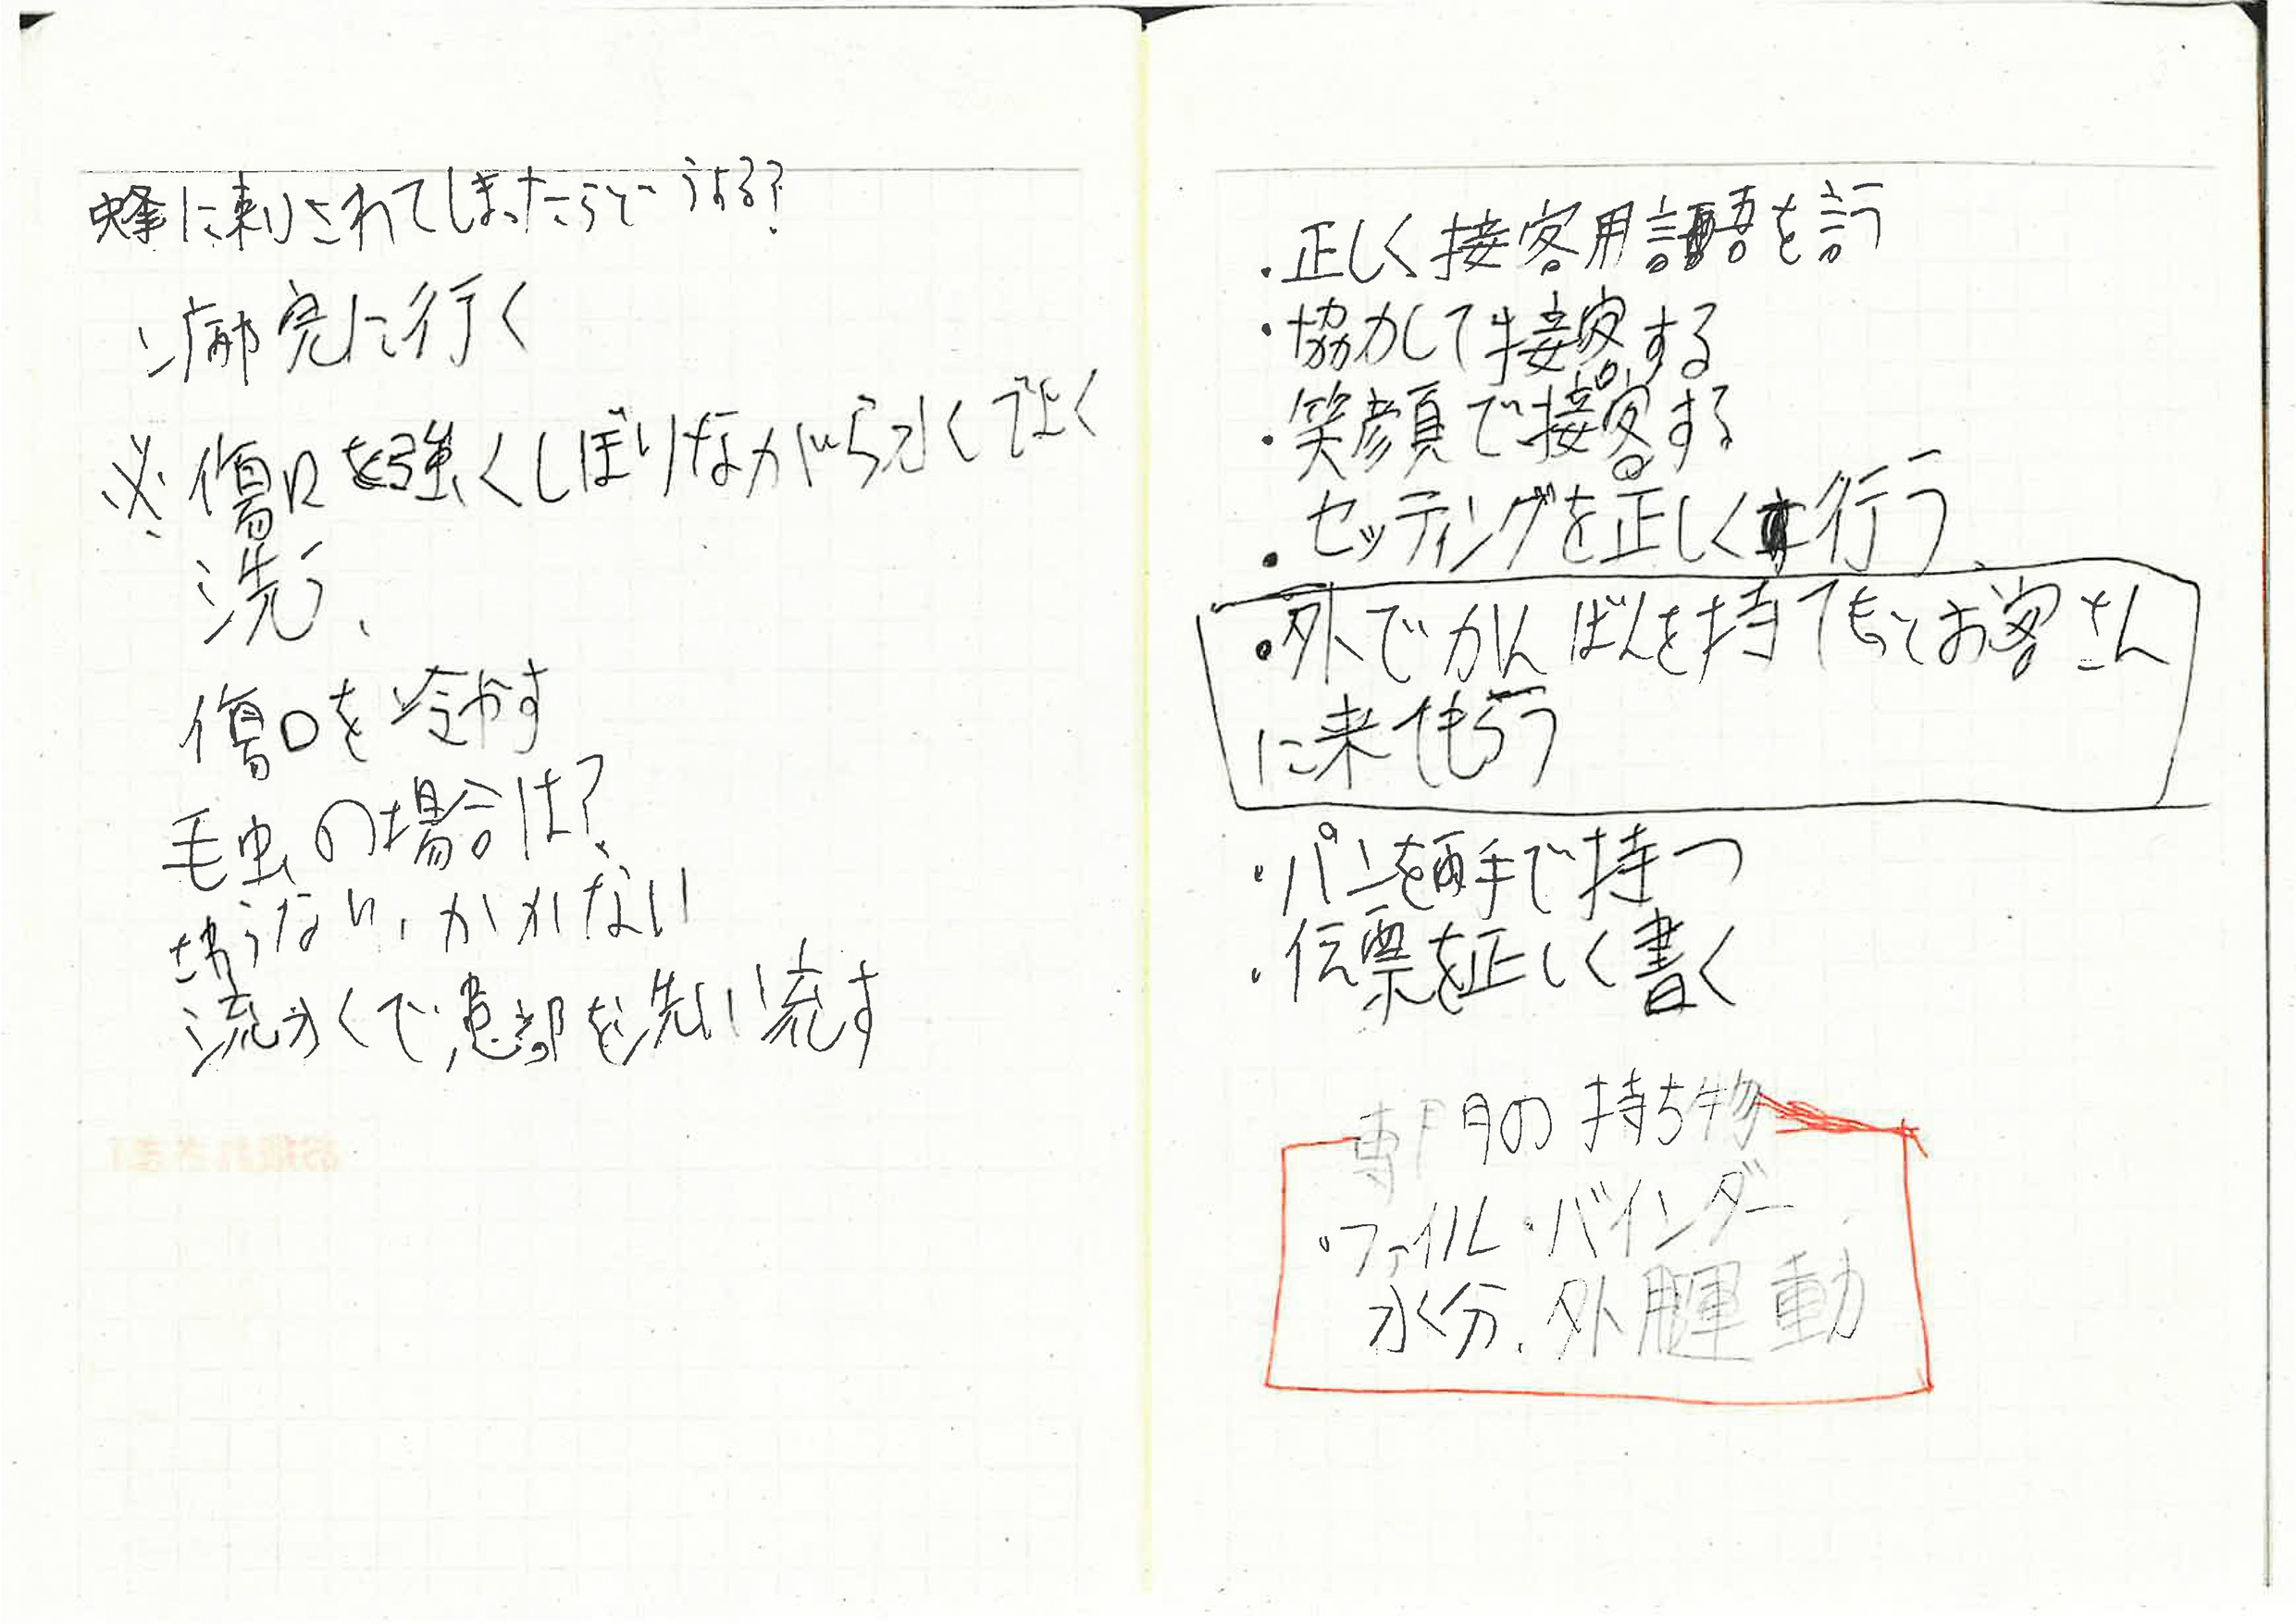 蜂に刺されてしまったらどうする?
病院に行く
※傷口を強くしぼりながら水でよく
洗う、
傷口を冷やす
毛虫の場合は?
さわらない、かかない
流水で患部を洗い流す
・正しく接客用語を言う
・協力して接客する
・笑顔で接客する
・セッティングを正しく行う、
・外でかんばんを持てもっとお客さん
に来てもらう
・パンを両手で持つ
・伝票を正しく書く
専門の持ち物
・ファイル・バインダー
水分、外用運動